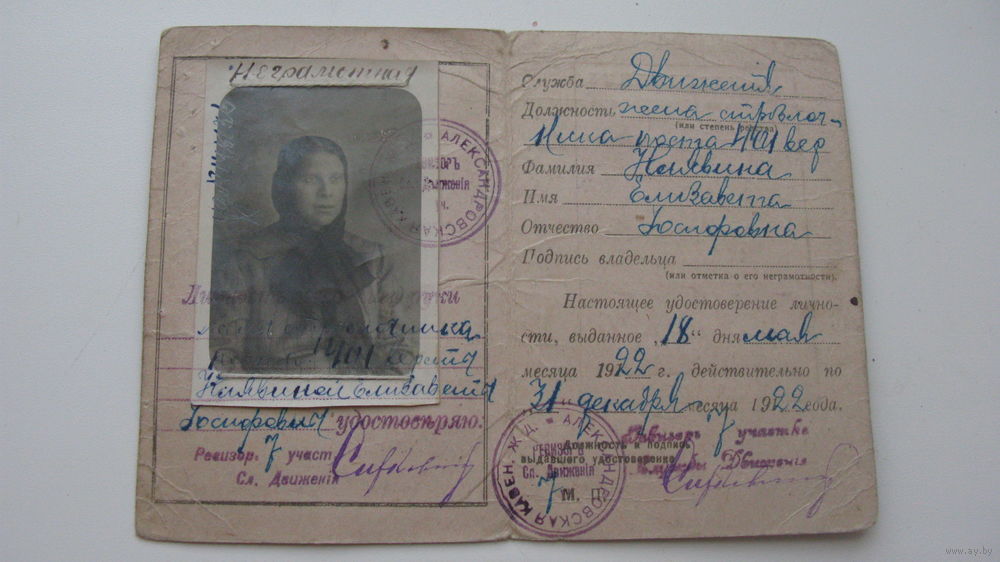 Неграмотная
АЛЕКСАНДРОВСКАЯ
Личность
жены стрелочника
1401
Князиной Елизаветы
Иосифовны удостовѣряю.
Ревизор 7 участ
Сл. Движенія
Служба Движения
Должность жена стрелоч-
(или степень родства)
ника поста 1401 вер
Фамилия
Имя Елизавета
Отчество Иосифовна
Подпись владельца
(или отметка о его неграмотности).
Настоящее удостоверение лично-
сти, выданное „18“ дня мая
месяца 1922 г. действительно по
31 декабря месяца 1922 года.
Ревизоръ 7 участка
Должность и подпись
выдавшего удостоверение
Службы Движения
М. П.
АЛЕКСАНДРОВСКАЯ Ж.Д.
РЕВИЗОРЪ
Сл. Движенія
7
www.ay.by